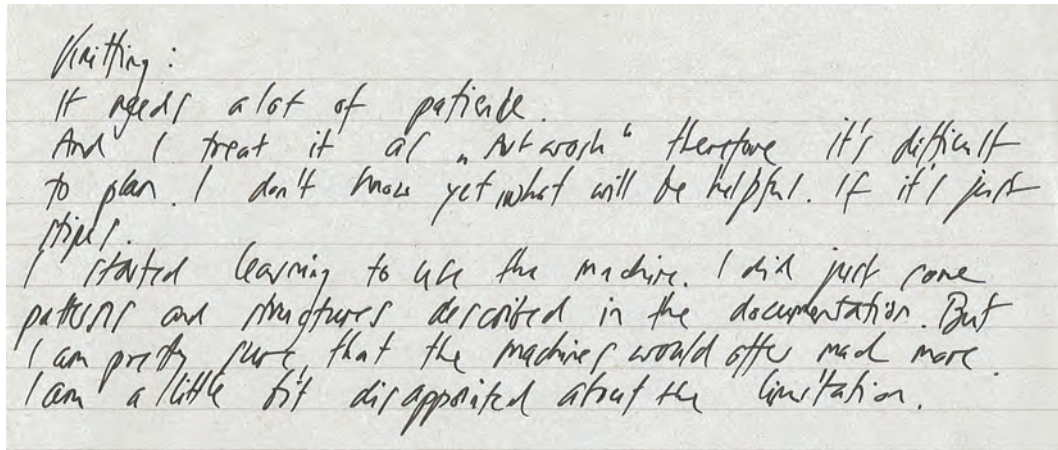 Knitting:
It needs a lot of patience.
And I treat it as „Artwork“ therefore it's difficult
to plan. I don't know yet what will be helpful. If it's just
stripes.
I started learning to use the machine. I did just some
patterns and structures described in the documentation. But
I am pretty sure, that the machines would offer much more.
I am a little bit disappointed about the limitation.